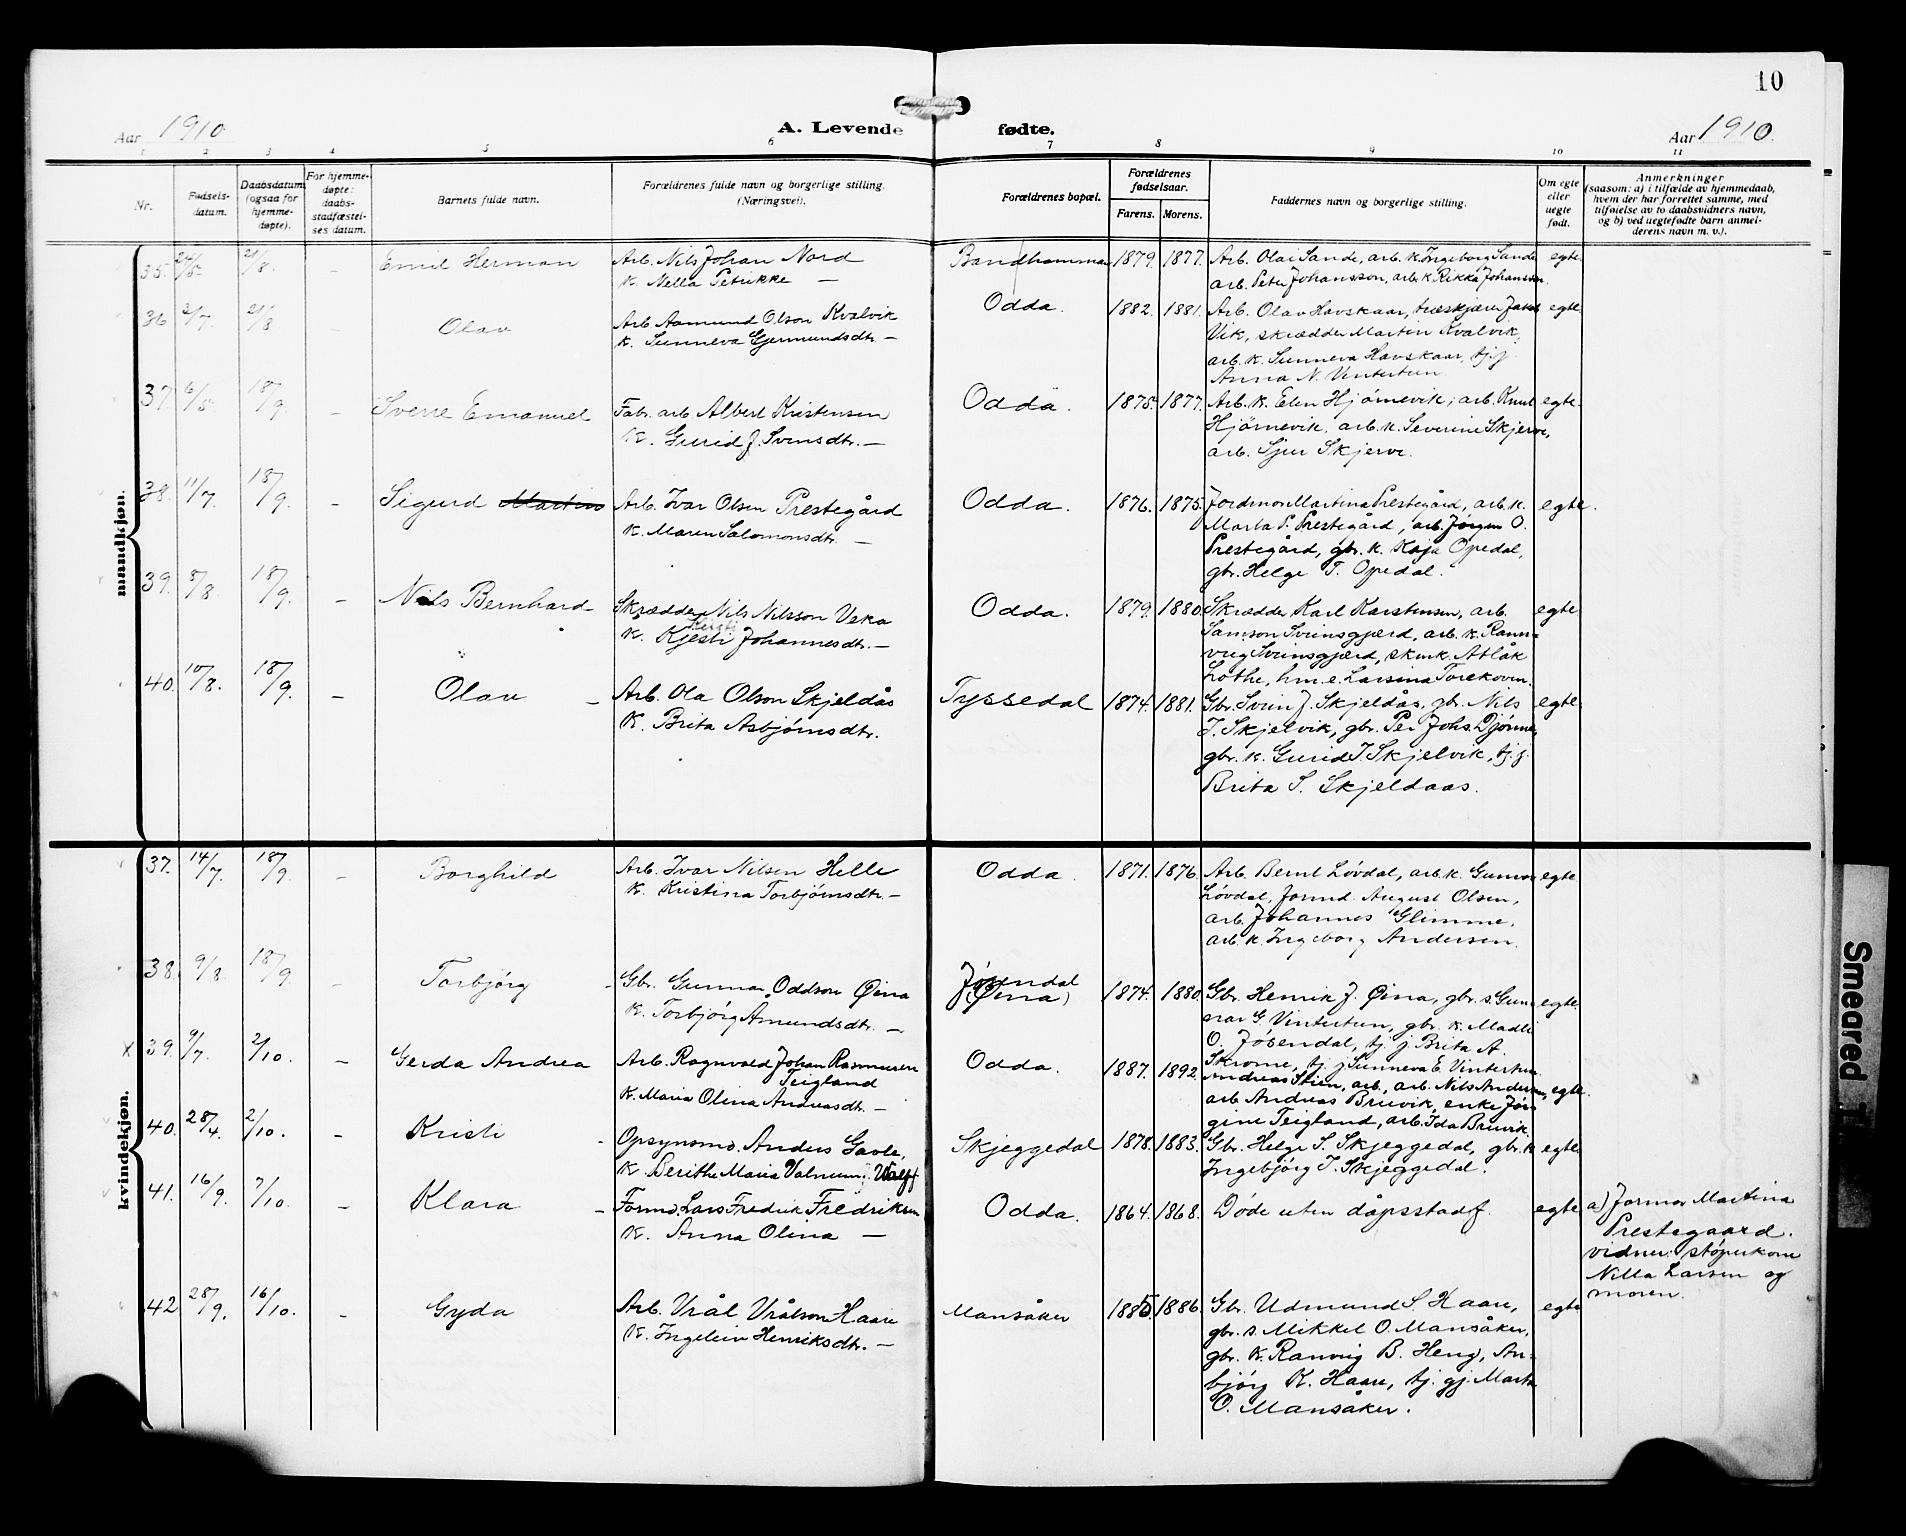 10
Aar 1910
A. Levende fødte.
Aar 1910.
1 2 3 4 5 6 7 8 9 10 11
Nr.
Fødsels-
datum.
Daabsdatum
(ogsaa for
hjemme-
døpte).
For hjemme-
døpte:
daabs-
stadfæstel-
ses datum.
Barnets fulde navn.
Forældrenes fulde navn og borgerlige stilling.
(Næringsvei).
Forældrenes bopæl.
Forældrenes
fødselsaar.
Farens. Morens.
Faddernes navn og borgerlige stilling.
Om egte
eller
uegte
født.
Anmerkninger
(saasom: a) i tilfælde av hjemmedaab,
hvem der har forrettet samme, med
tilføielse av to daabsvidners navn,
og b) ved uegtefødte barn anmel-
derens navn m. v.).
mandkjøn.
35. 24/5. 21/8. - Emil Herman
Arb. Nils Johan Nord
K. Nella Petrikke —
Bandhammar 1879. 1877.
Arb. Olai Sande, arb. k. Ingeborg Sande
arb. Peter Johansson, arb. k. Rikka Johansson.
egte
36 2/7. 21/8 - Olav
Arb. Aamund Olson Kvalvik
K. Sunneva Gjermundsdtr. —
Odda. 1882. 1881.
Arb. Olav Havskaar, træskjærer Jakob
Vik, skrædder Martin Kvalvik,
arb. k. Sunneva Havskaar, tj. j.
Anna N. Vintertun.
egte
37. 6/5 18/9 - Sverre Emanuel
Fabr. arb Albert Kristensen
K. Gurid J. Svensdtr. —
Odda. 1875. 1877.
Arb. k. Elen Hjørnevik, arb. Knut
Hjørnevik, arb. k. Severine Skjerve,
arb. Sjur Skjerve.
egte.
38. 11/7. 18/9. - Sigurd Martin
Arb. Ivar Olsen Prestegård
K. Maren Salomonsdtr. —
Odda. 1876. 1875.
Jordmor Martina Prestegård, arb. k.
Marta P. Prestegård, arb. Jørgen O.
Prestegård, gbr. k. Kaja Opedal,
gbr. Helge T. Opedal.
egte.
39. 8/8 18/9. - Nils Bernhard -
Skrædder Nils Nilsson Veka
Kristi
K. Kjesti Johannesdtr. —
Odda. 1879. 1880.
Skrædder Karl Karstensen, arb.
Samson Svinsgjærd, arb. k. Rann-
veig Svinsgjærd, skm k. Atlåk
Lothe, hm. e. Larsina Torekoven.
egte
40. 10/8. 18/9. - Olav -
Arb. Ola Olson Skjeldås
K. Brita Asbjørnsdtr.
Tyssedal 1874. 1881.
Gbr. Svein J. Skjeldås, gbr. Nils
J. Skjelvik, gbr. Per Johs. Djønne,
gbr. k. Gurid J. Skjelvik, tj. j.
Brita S. Skjeldaas.
egte
kvindekjøn.
37. 14/7. 18/9. - Borghild
Arb. Ivar Nilsen Helle
K. Kristina Torbjørnsdtr. —
Odda. 1871. 1876.
Arb. Bernt Løvdal, arb. k. Gunvor
Løvdal, formd. August Olsen,
arb. Johannes Glimme,
arb. k. Ingeborg Andersen.
egte
38. 9/8. 18/9. - Torbjørg -
Gbr. Gunnar Oddson Øina
K. Torbjørg Amundsdtr. —
Jøsendal
(Øina) 1874. 1880.
Gbr. Henrik J. Øina, gbr. s. Gun-
nar G. Vintertun, gbr. k. Madli
O. Jøsendal, tj. j. Brita A.
Skrome, tj. j Sunneva E. Vintertun.
egte
x 39. 9/7. 2/10. - Gerda Andrea
Arb. Ragnvald Johan Rasmussen
Teigland
K. Maria Olina Andreasdtr. —
Odda. 1887. 1892
Andreas Stien, arb., arb. Nils Andersen,
arb Andreas Bruvik, enke Jør-
gine Teigland, arb. Ida Bruvik
egte.
40. 28/4. 2/10. - Kristi -
Opsynsmd. Anders Gavle,
K. Berithe Maria Valnum, f. Wolff
Skjeggedal 1878. 1883.
Gbr. Helge S. Skjeggedal, gbr. k
Ingebjørg J. Skjeggedal.
egte
41. 16/9. 7/10. - Klara -
Formd. Lars Fredrik Fredriksen
K. Anna Olina —
Odda. 1864. 1868.
Døde uten dåpsstadf.
egte
a) Jormor Martina
Prestegaard.
vidner: støperkone
Nilla Larsen og
moren.
42 28/9. 16/10. - Gyda
Arb. Vrål Vrålson Haare
K. Ingeleiv Henriksdtr. —
Mansåker 1885. 1886.
Gbr. Udmund S. Haare,
gbr. s. Mikkel O. Mansåker,
gbr. k. Ranveig B. Heng, An-
bjørg K. Haare, tj. gj. Marta
O. Mansåker.
egte
Smeared